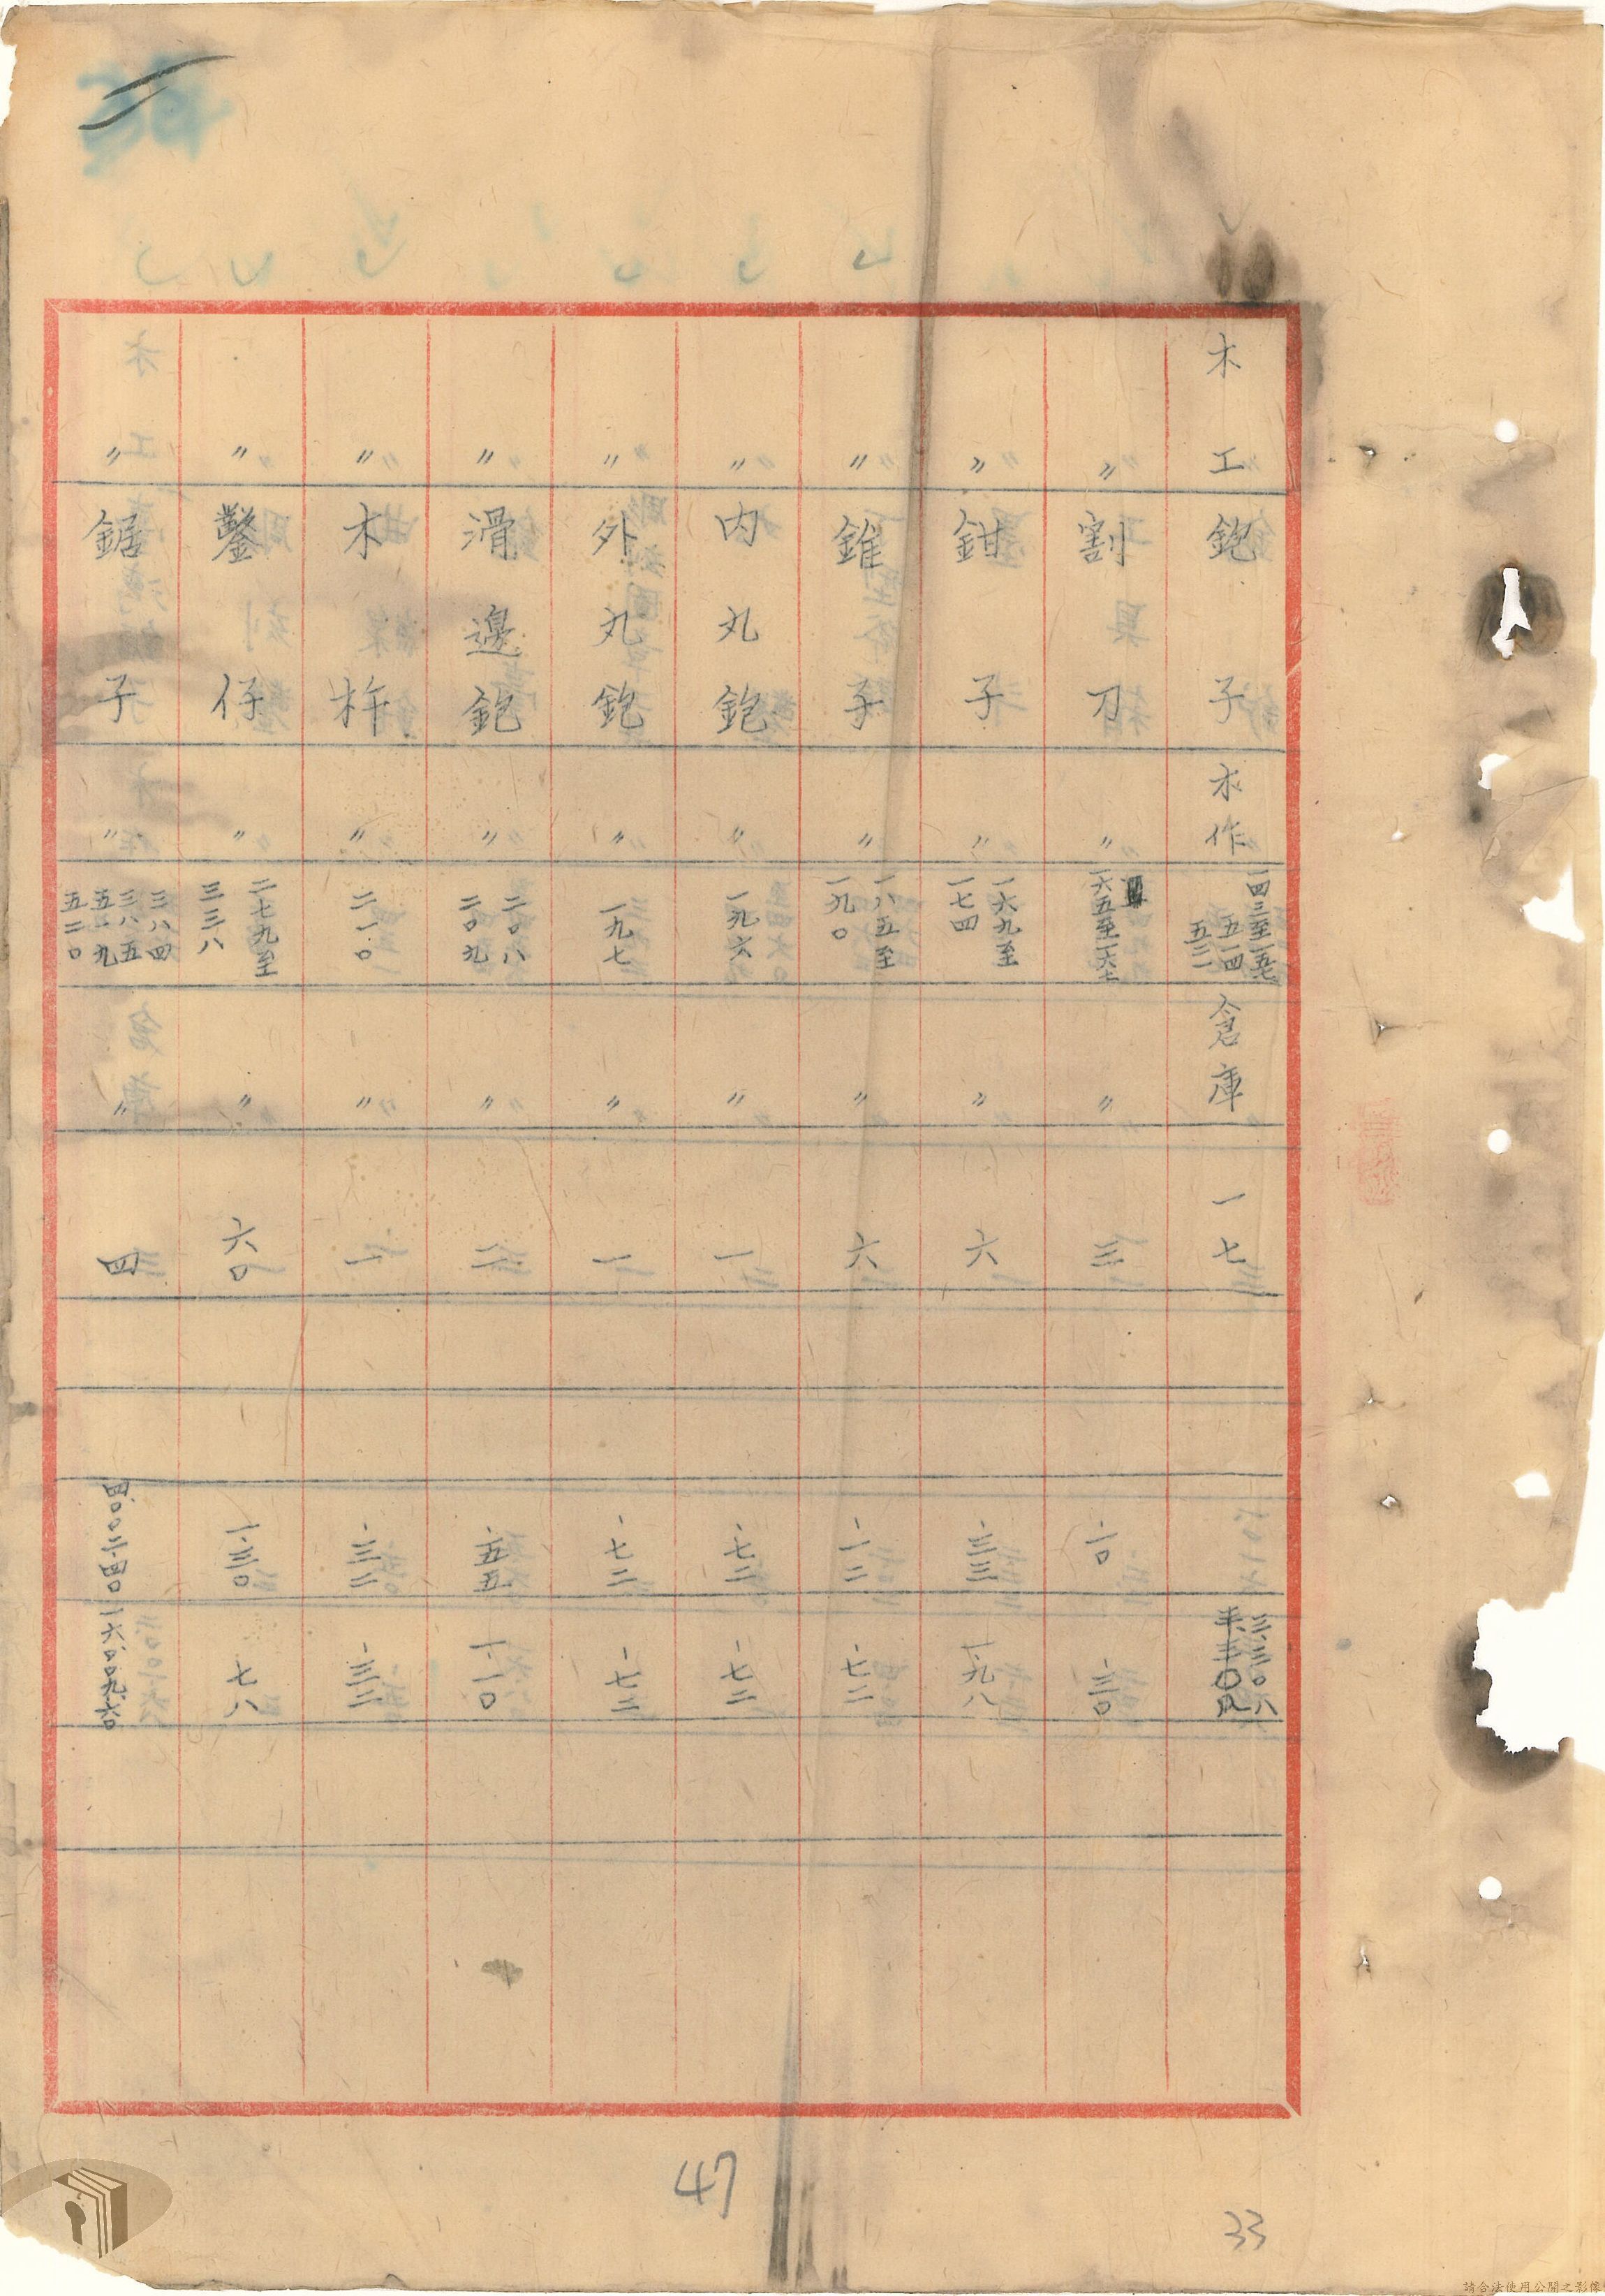 木工 鉋子 木作 一四三至一五七 五一四 五二一 倉庫 一七 三.三〇八
〃 割刀 〃 一六五至一六七 〃 三 .一〇 .三〇
〃 鉗子 〃 一六九至一七四 〃 六 .三三 一.九八
〃 錐子 〃 一八五至一九〇 〃 六 .一二 .七二
〃 内丸鉋 〃 一九六 〃 一 .七二 .七二
〃 外丸鉋 〃 一九七 〃 一 .七二 .七二
〃 滑邊鉋 〃 二〇八 二〇九 〃 二 .五五 一.一〇
〃 木杵 〃 二一〇 〃 一 .三二 .三二
〃 鑿仔 〃 二七九至三三八 〃 六〇 一.三〇 七八
〃 鋸子 〃 三八四 三八五 五一九 五二〇 〃 四
47
33
請合法使用公開之影像